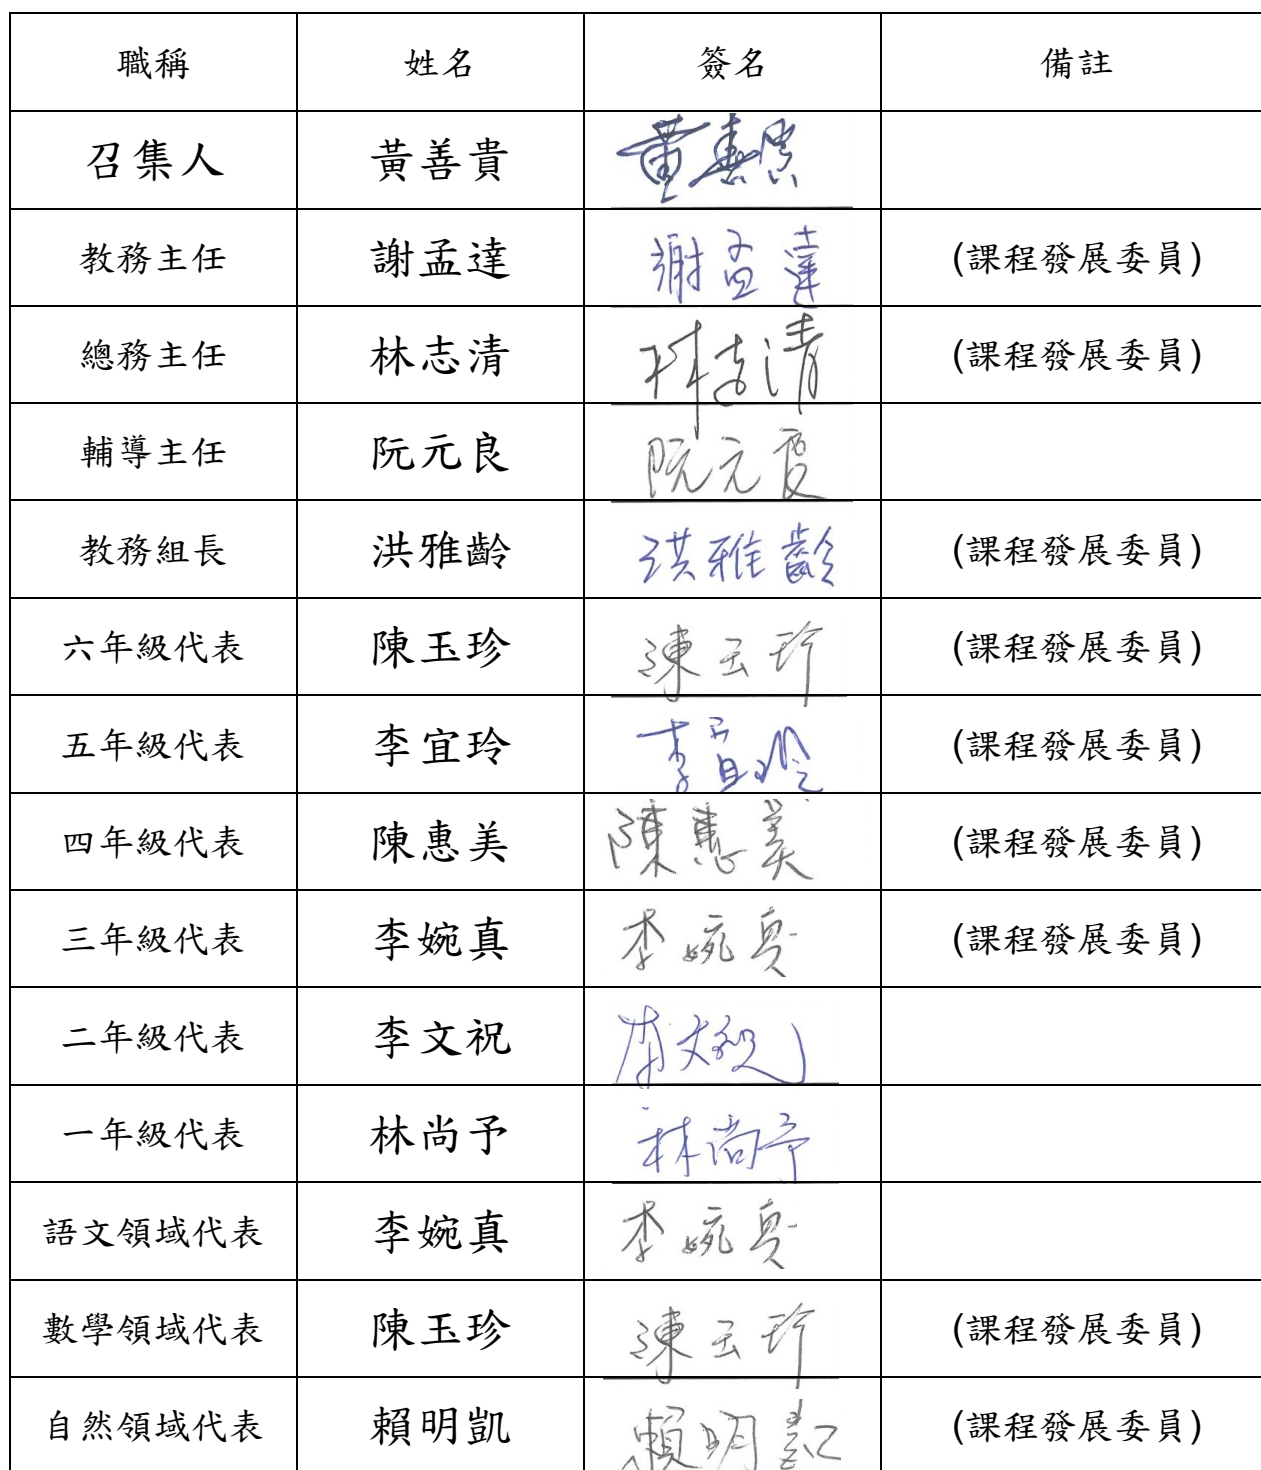 職稱 姓名 簽名 備註
召集人 黃善貴 黃善貴
教務主任 謝孟達 謝孟達 (課程發展委員)
總務主任 林志清 林志清 (課程發展委員)
輔導主任 阮元良 阮元良
教務組長 洪雅齡 洪雅齡 (課程發展委員)
六年級代表 陳玉珍 陳玉珍 (課程發展委員)
五年級代表 李宜玲 李宜玲 (課程發展委員)
四年級代表 陳惠美 陳惠美 (課程發展委員)
三年級代表 李婉真 李婉真 (課程發展委員)
二年級代表 李文祝 李文祝
一年級代表 林尚予 林尚予
語文領域代表 李婉真 李婉真
數學領域代表 陳玉珍 陳玉珍 (課程發展委員)
自然領域代表 賴明凱 賴明凱 (課程發展委員)